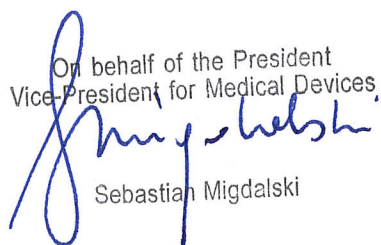 On behalf of the President
Vice-President for Medical Devices
Sebastian Migdalski